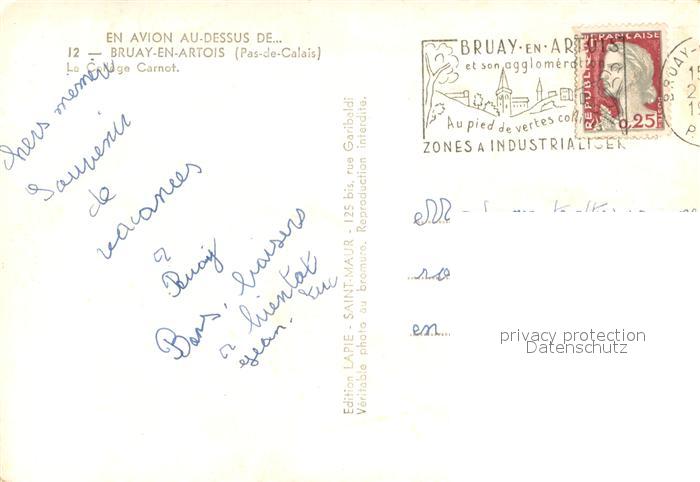 EN AVION AU-DESSUS DE...
12 — BRUAY-EN-ARTOIS (Pas-de-Calais)
Le Collège Carnot.
chers mémère
Souvenir
de
vacances
à
Bruay
Bons baisers
à bientot
Jean-Luc
Edition LAPIE - SAINT-MAUR - 125 bis, rue Garibaldi
Véritable photo au bromure. Reproduction interdite.
BRUAY-EN-ARTOIS
et son agglomération
Au pied de vertes coll
ZONES A INDUSTRIALISER
REPUBLIQUE FRANÇAISE
0,25
BRUAY
ell
en
privacy protection
Datenschutz